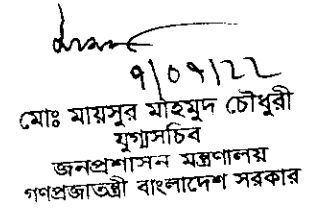 ৭/০৭/২২
মোঃ মায়সুর মাহমুদ চৌধুরী
যুগ্মসচিব
জনপ্রশাসন মন্ত্রণালয়
গণপ্রজাতন্ত্রী বাংলাদেশ সরকার